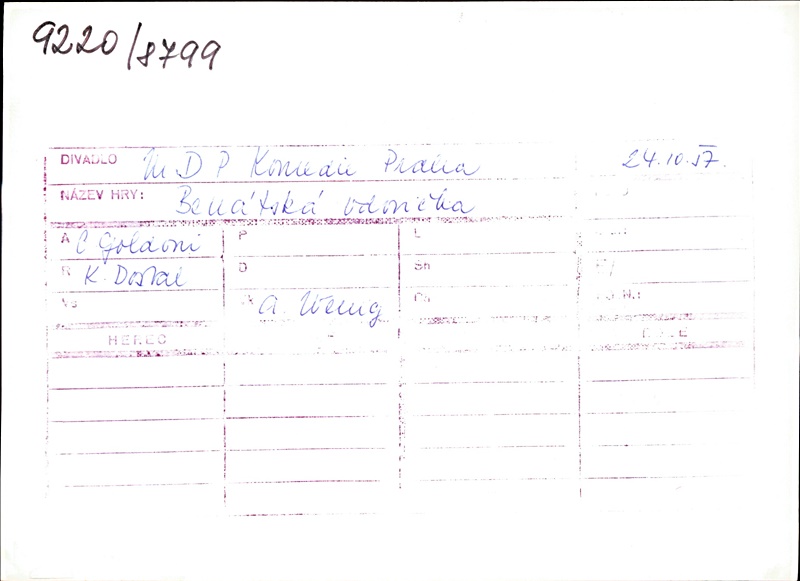 9220/8799
DIVADLO M D P Komedie Praha 24.10.57.
NÁZEV HRY: Benátská vdovička
A C Goldoni P L
R K. Dostal D Sh
Vs A. Wenig
HEREC